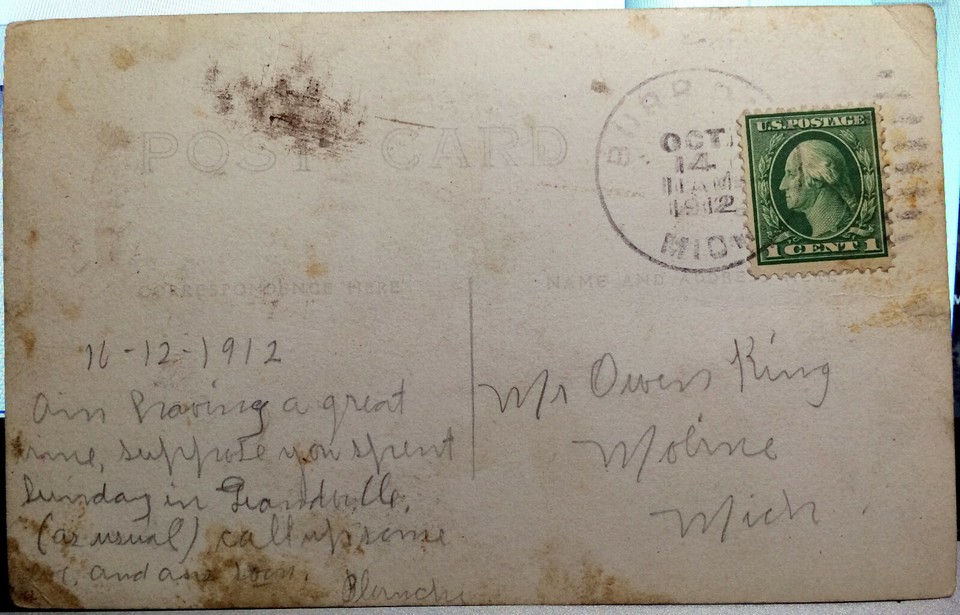 POST CARD
BURR
OCT.
14
11 AM
1912
MICH
U.S. POSTAGE
1 CENT 1
CORRESPONDENCE HERE
NAME AND ADDRESS HERE
10-12-1912
Am having a great
time, suppose you spent
Sunday in Grandville,
(as usual) call up some
and ans soon.
Blanche
Mr Owen King
Moline
Mich.